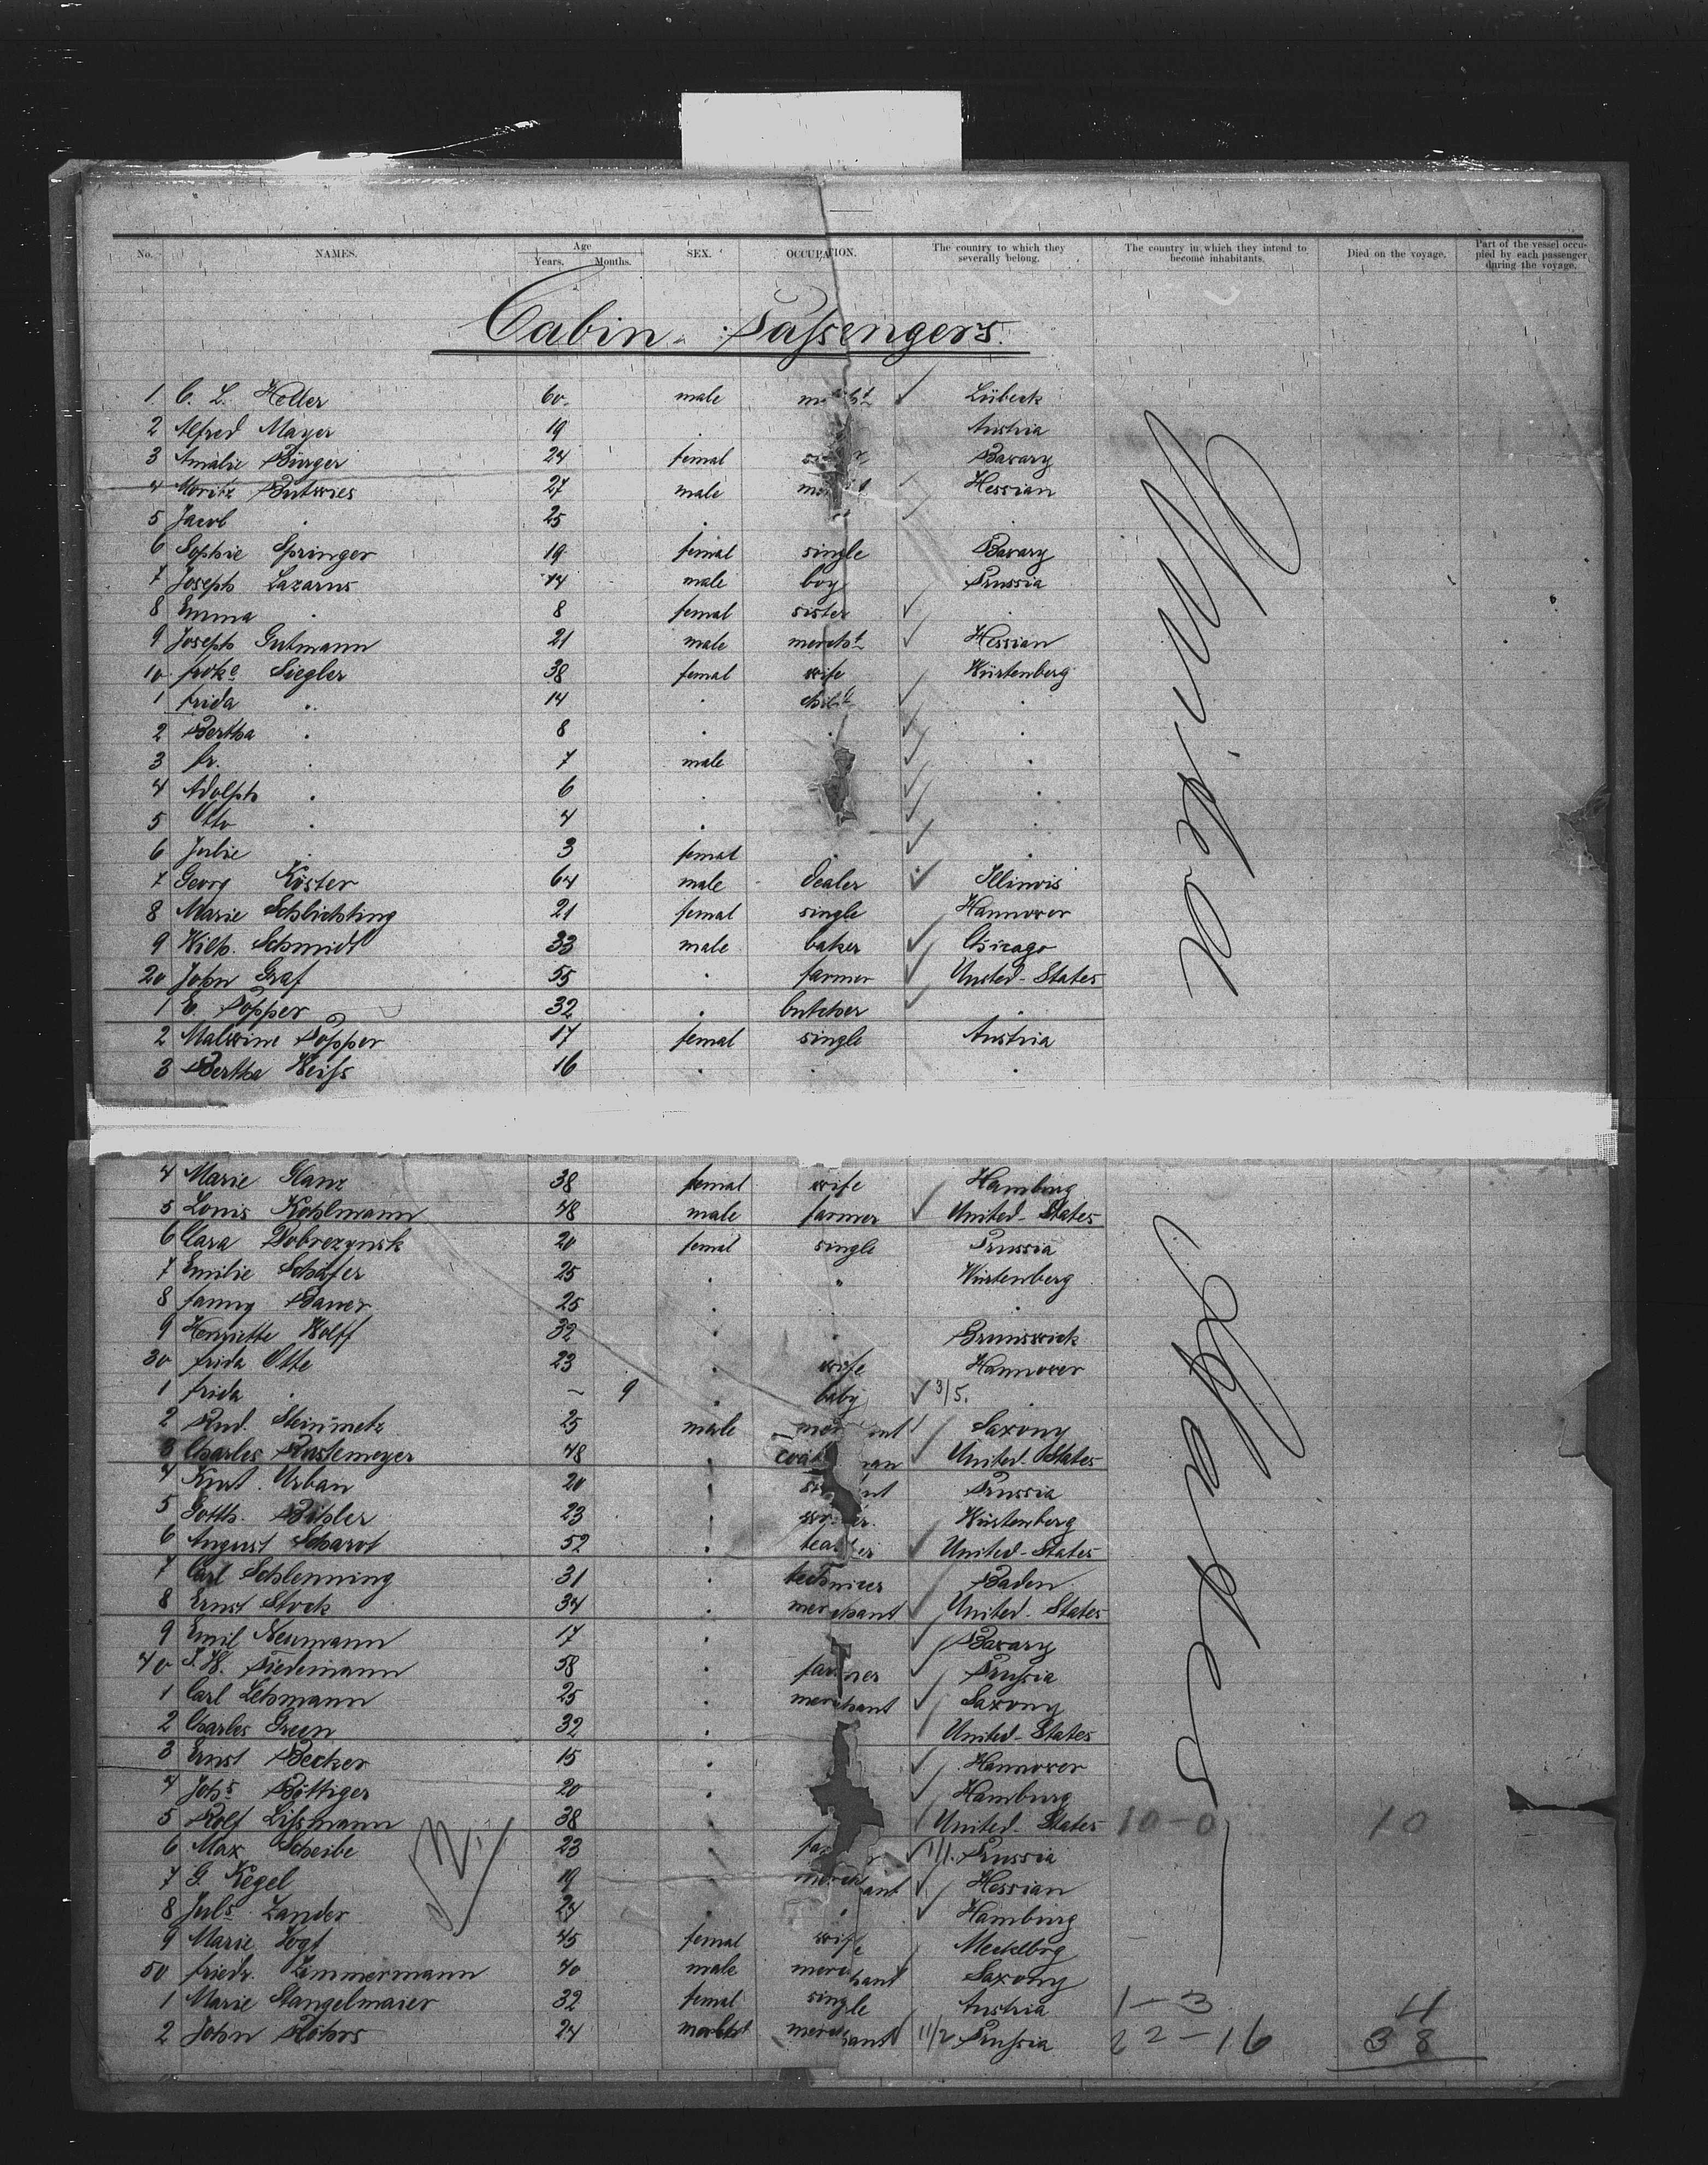 No. NAMES. Age Years. Months. SEX. OCCUPATION. The country to which they severally belong. The country in which they intend to become inhabitants. Died on the voyage. Part of the vessel occupied by each passenger during the voyage.
Cabin Passengers.
1 C. L. Heller 60 male Lübeck
2 Alfred Mayer 19 . Austria
3 Amalie Bürger 24 femal Bavary
4 Moritz 27 male Hessian
5 Jacob . 25 . .
6 Sophie Springer 19 femal single Bavary
7 Joseph Lazarus 14 male boy Prussia
8 Emma . 8 femal sister .
9 Joseph Gutmann 21 male mercht Hessian
10 Siegler 38 femal wife Würtenberg
1 Frida . 14 . child .
2 Bertha . 8 . . .
3 Fr. . 7 male .
4 Adolph . 6 . .
5 Otto . 4 . .
6 Julie . 3 femal . .
7 Georg Köster 64 male dealer Illinois
8 Marie Schlichting 21 femal single Hannover
9 Wilh. Schmidt 33 male baker Chicago
20 John Graf 55 . farmer United-States
1 E. Popper 32 . butcher .
2 Malwine Popper 17 femal single Austria
3 Bertha Weiss 16 . . .
4 Marie Glanz 38 femal wife Hamburg
5 Louis Kohlmann 48 male farmer United-States
6 Clara Dobrezynsk 20 femal single Prussia
7 Emilie Schäfer 25 . " Würtenberg
8 Fanny Bauer 25 . . .
9 Henriette Wolff 32 . . Brunswick
30 Frida Otte 23 . wife Hannover
1 Frida . – 9 . baby 3/5. .
2 Rud. Steinmetz 25 male mer nt Saxony
3 Charles Rastemeyer 48 . United-States
4 Kurt Urban 20 . Prussia
5 Gotth. Bihler 23 . Würtenberg
6 August Scharot 52 . tea er United-States
7 Carl Schlenning 31 . technicer Baden
8 Ernst Stock 34 . merchant United-States
9 Emil Neumann 17 . Bavary
40 J. H. Tiedemann 58 . farmer Prussia
1 Carl Lehmann 25 . merchant Saxony
2 Charles Green 32 . United-States
3 Ernst Becker 15 . Hannover
4 Johs Böttiger 20 . Hamburg
5 Rolf Litsmann 38 . United-States 10-0 10
6 Max Scheibe 23 . fa r 1/1. Prussia
7 G. Kegel 19 . merchant Hessian
8 Juls Zander 24 . . Hamburg
9 Marie Vogt 45 femal wife Mecklbrg
50 Friedr. Zimmermann 40 male merchant Saxony
1 Marie Stangelmaier 32 femal single Austria 1-3 4
2 John Röhrs 24 merchant 11/2 Prussia 22-16 38